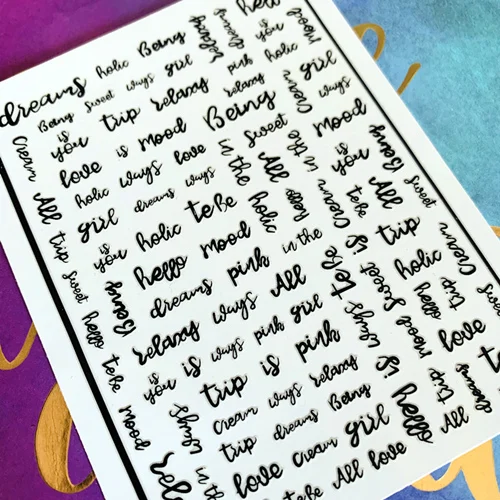 dreams holic Being relaxy dreams you is mood
Being sweet ways girl pink holic
Cream you is trip relaxy relaxy Cream girl
love is mood Being sweet in the ways
All holic ways love in the All mood
trip girl dreams ways hello you is Being
sweet you is holic teRe holic Cream teRe All sweet
hello Being hello mood in the is trip
teRe dreams pink teRe sweet holic Cream
mood relaxy ways All ways mood hello trip
you is ways pink girl is love
ways trip is pink hello trip dreams
in the Cream ways relaxy All
trip dreams Being girl
love Cream love
in the All